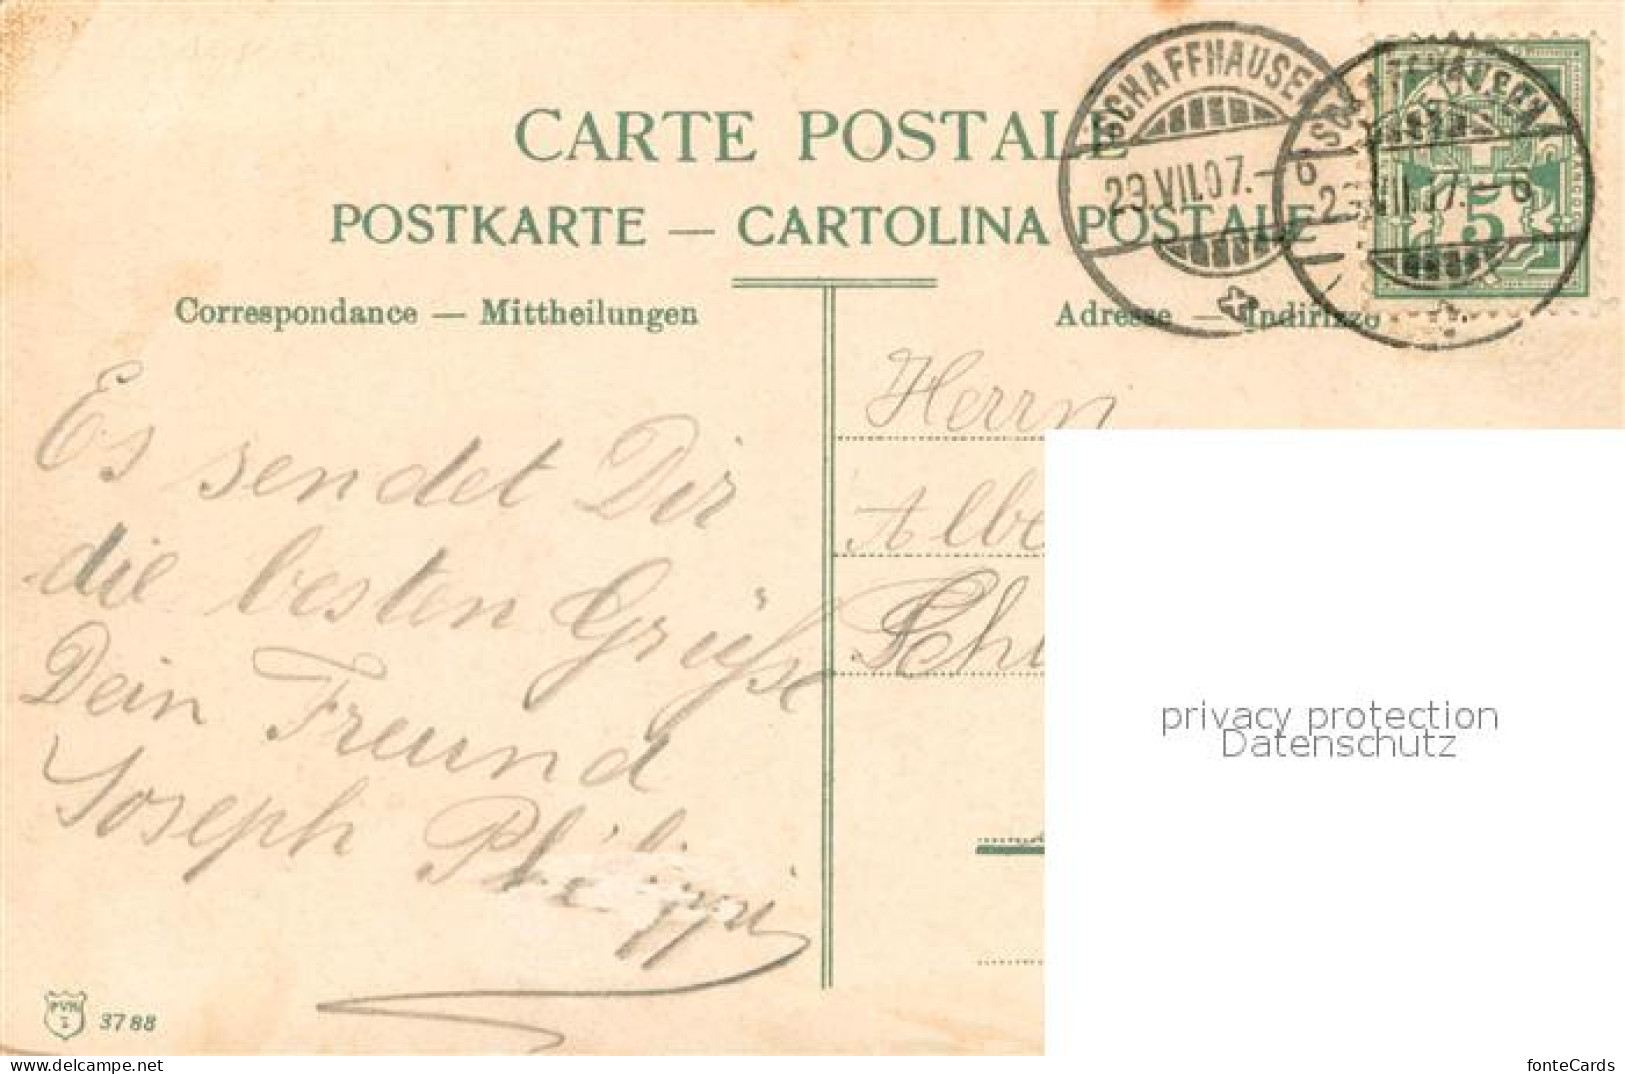 CARTE POSTALE
POSTKARTE — CARTOLINA POSTALE
Correspondance — Mittheilungen
Adresse — Indirizzo
SCHAFFHAUSEN
29.VII.07.–6
SCHAFFHAUSEN
29.VII.07.–6
5
FRANCO
Es sendet Dir
die besten Grüsse
Dein Freund
Joseph Philippi
Herrn
Albe
Sch
privacy protection
Datenschutz
PVKZ
3788
fonteCards